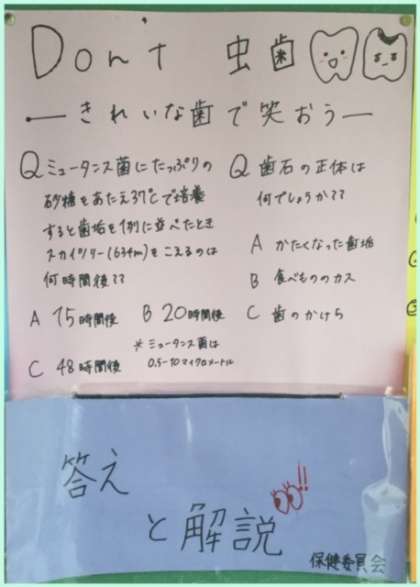 Don't 虫歯
―きれいな歯で笑おう―
Q ミュータンス菌にたっぷりの
砂糖をあたえ37℃で培養
すると歯垢を1列に並べたとき
スカイツリー(634m)をこえるのは
何時間後??
A 15時間後 B 20時間後
C 48時間後
※ミュータンス菌は
0.5-10マイクロメートル
Q 歯石の正体は
何でしょうか??
A かたくなった歯垢
B 食べもののカス
C 歯のかけら
答え
と解説!!
保健委員会